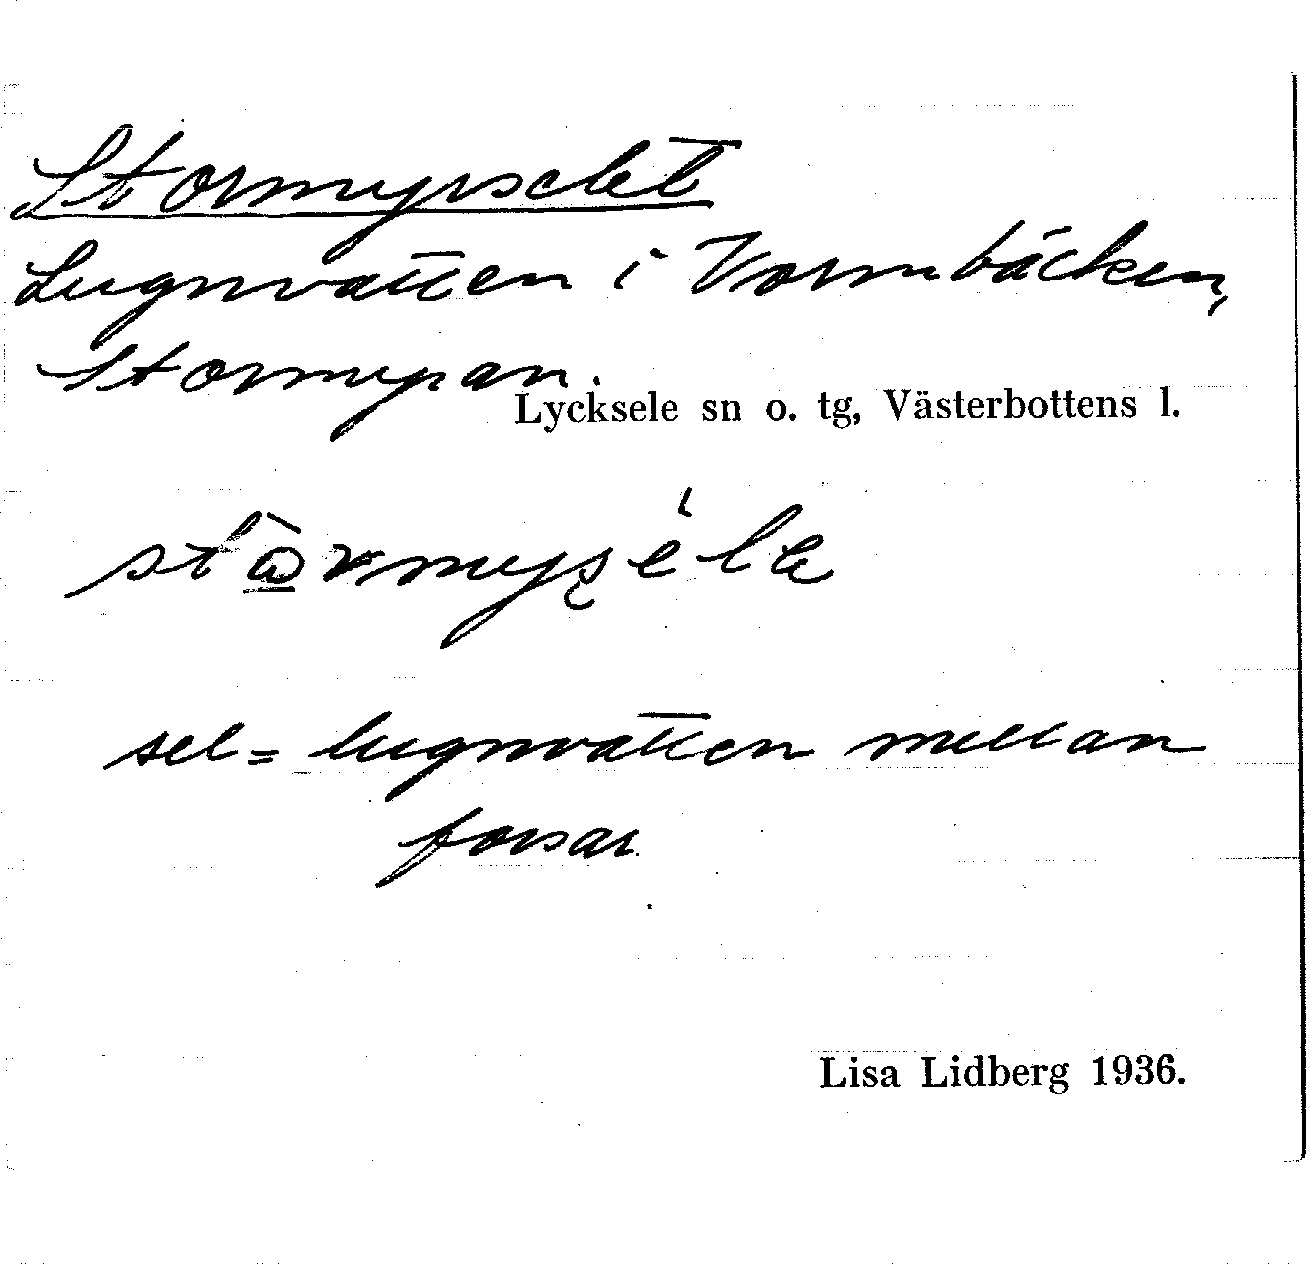 Stormyrselet
Lugnvatten i Vormbäcken,
Stormyran.
Lycksele sn o. tg, Västerbottens l.
sel = lugnvatten mellan
forsar.
Lisa Lidberg 1936.